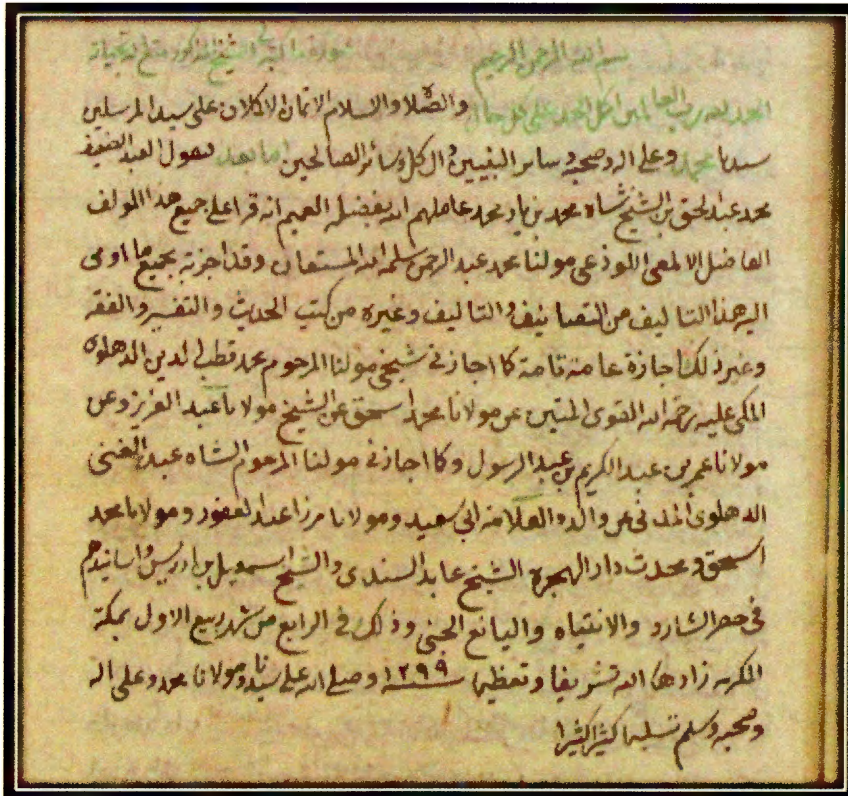 بسم الله الرحمن الرحيم صورة ما كتبه الشيخ المذكور متع الله بحياته
الحمد لله رب العالمين اكمل الحمد على كل حال والصلا والسلام الاتمان الاكملان على سيد المرسلين
سيدنا محمد وعلى اله وصحبه وساير النبيين وال كل وسائر الصالحين اما بعد فيقول العبد الضعيف
محمد عبد الحق بن الشيخ شاه محمد بن يار محمد عاملهم الله بفضله العميم انه قرا على جميع هذا المولف
الفاضل الالمعى اللوذعى مولنا محمد عبد الرحمن سلمه الله المستعان وقد اجزته بجميع ما اومى
اليه هذا التاليف من التصانيف والتاليف وغيره من كتب الحديث والتفسير والفقه
وغير ذلك اجازة عامة تامة كما اجازنى شيخى مولنا المرحوم محمد قطب الدين الدهلوى
المكى عليه رحمة الله القوى المتين عن مولانا محمد اسحق عن الشيخ مولانا عبد العزيز وعن
مولانا عمر بن عبد الكريم بن عبد الرسول وكما اجازنى مولنا المرحوم الشاه عبد الغنى
الدهلوى المدنى عن والده العلامة ابى سعيد ومولانا مرزا عبد الغفور ومولانا محمد
اسحق ومحدث دار الهجرة الشيخ عابد السندى والشيخ اسمعيل بن ادريس واسانيدهم
فى حصر الشارد والانتباه واليانع الجنى وذلك فى الرابع من شهر ربيع الاول بمكة
المكرمه زادها الله تشريفا وتعظيما سنة ١٢٩٩ وصلى الله على سيدنا ومولانا محمد وعلى اله
وصحبه وسلم تسليما كثيرا كثيرا